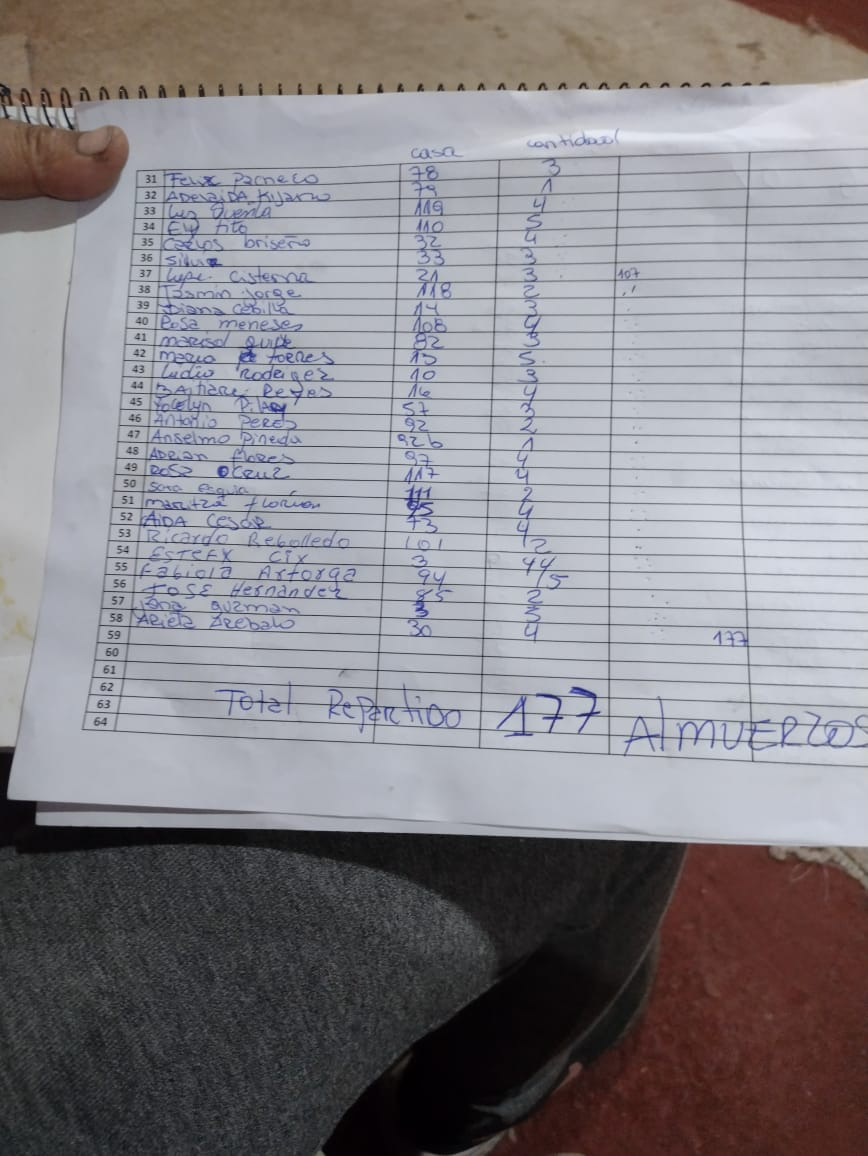 casa cantidad
31 Felix Pacheco 78 3
32 ADelaiDA Kijano 79 1
33 Luz 119 4
34 Ely tito 110 5
35 Carlos briseño 32 4
36 Silvia 33 3
37 Lupe Cisterna 21 3 107
38 Jasmin Jorge 118 2
39 Diana 14 3
40 Rosa meneses 108 4
41 marisol quipe 82 3
42 mario torres 15 5
43 Ludio Rodrigez 10 3
44 Reyes 16 4
45 Jocelyn 57 3
46 Antonio Peres 92 2
47 Anselmo Pineda 92b 1
48 Adrian flores 97 4
49 Rosa Cruz 117 4
50 Sara 111 2
51 maritza florian 95 4
52 AiDA Cesar 73 4
53 Ricardo Rebolledo 101 2
54 ESTEFX Cix 3
55 Fabiola Artorga 94
56 JOSE Hernandez 85 2
57 guzman 3
58 Arieta Arebalo 30 4
59 177
60
61
62
63 Total Repartido 177 AlMUERZOS
64